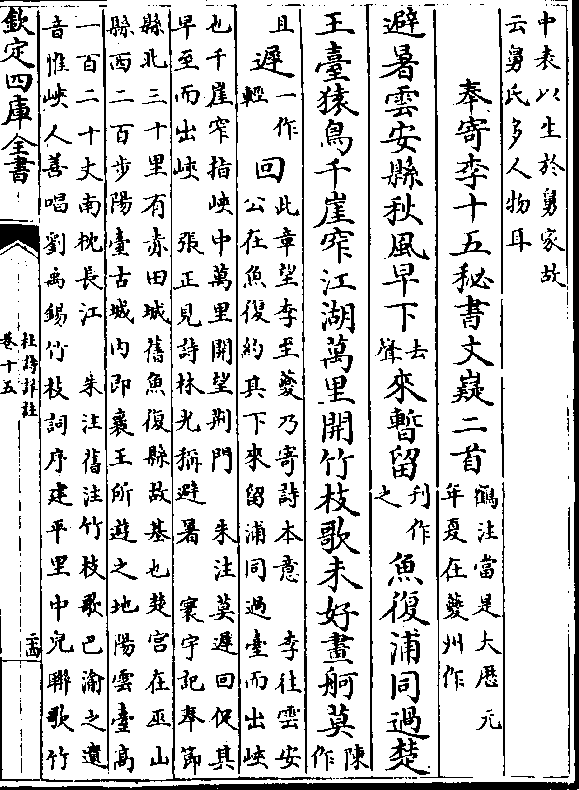 中表以生於舅家故
云舅氏多人物耳
奉寄李十五秘書文嶷二首
鶴注當是大厯元
年夏在夔州作
避暑雲安縣秋風早下
去
聲
來暫留
刋作
之
魚復浦同過楚
王臺猿鳥千崖窄江湖萬里開竹枝歌未好畫舸莫
陳
作
且
遲
一作
輕
回
此章望李至夔乃寄詩本意 李往雲安
公在魚復約其下來留浦同過臺而出峽
也千崖窄指峽中萬里開望荆門 朱注莫遲回促其
早至而出峽 張正見詩林光稱避暑 寰宇記奉節
縣北三十里有赤田城舊魚復縣故基也楚宫在巫山
縣西二百步陽臺古城内即襄王所遊之地陽雲臺高
一百二十丈南枕長江 朱注舊注竹枝歌巴渝之遺
音惟峽人善唱劉禹錫竹枝詞序建平里中兒聯歌竹
欽定四庫全書
杜詩詳註
卷十五